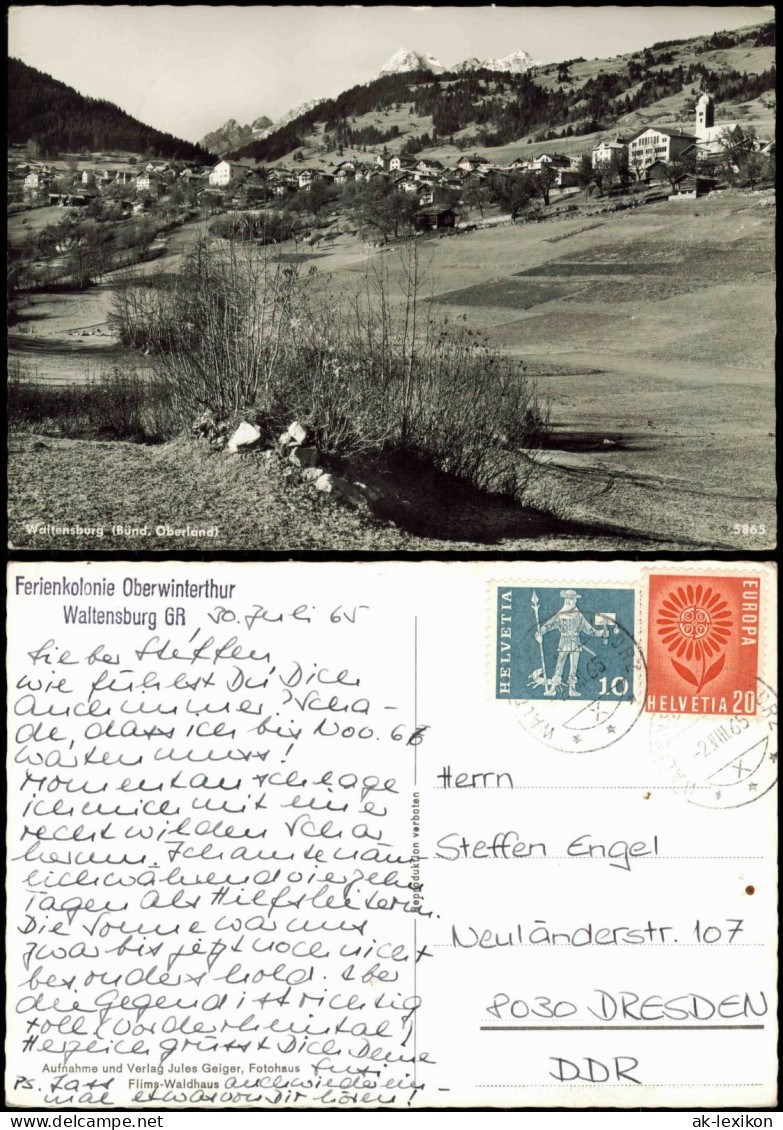 Waltensburg (Bünd. Oberland)
5865
Ferienkolonie Oberwinterthur
Waltensburg GR
30. Juli 65
Lieber Steffen,
wie fühlst Du Dich
auch immer? Scha-
de, dass ich bis Nov. 66
warten muss!
Momentan schlage
ich mich mit einer
recht wilden Schar
herum. Ich amte näm-
lich während vierzehn
Tagen als Hilfsleiterin.
Die Sonne war uns
zwar bis jetzt noch nicht
besonders hold. Aber
die Gegend ist richtig
toll (Vorderrheintal)!
Herzlich grüsst Dich Deine
Susi
PS. Lass auch wieder ein-
mal etwas von Dir hören!
Aufnahme und Verlag Jules Geiger, Fotohaus
Flims-Waldhaus
Reproduktion verboten
HELVETIA
10
EUROPA
HELVETIA 20
-2.VIII.65
X
Herrn
Steffen Engel
Neuländerstr. 107
8030 DRESDEN
DDR
oldthing
ak-lexikon